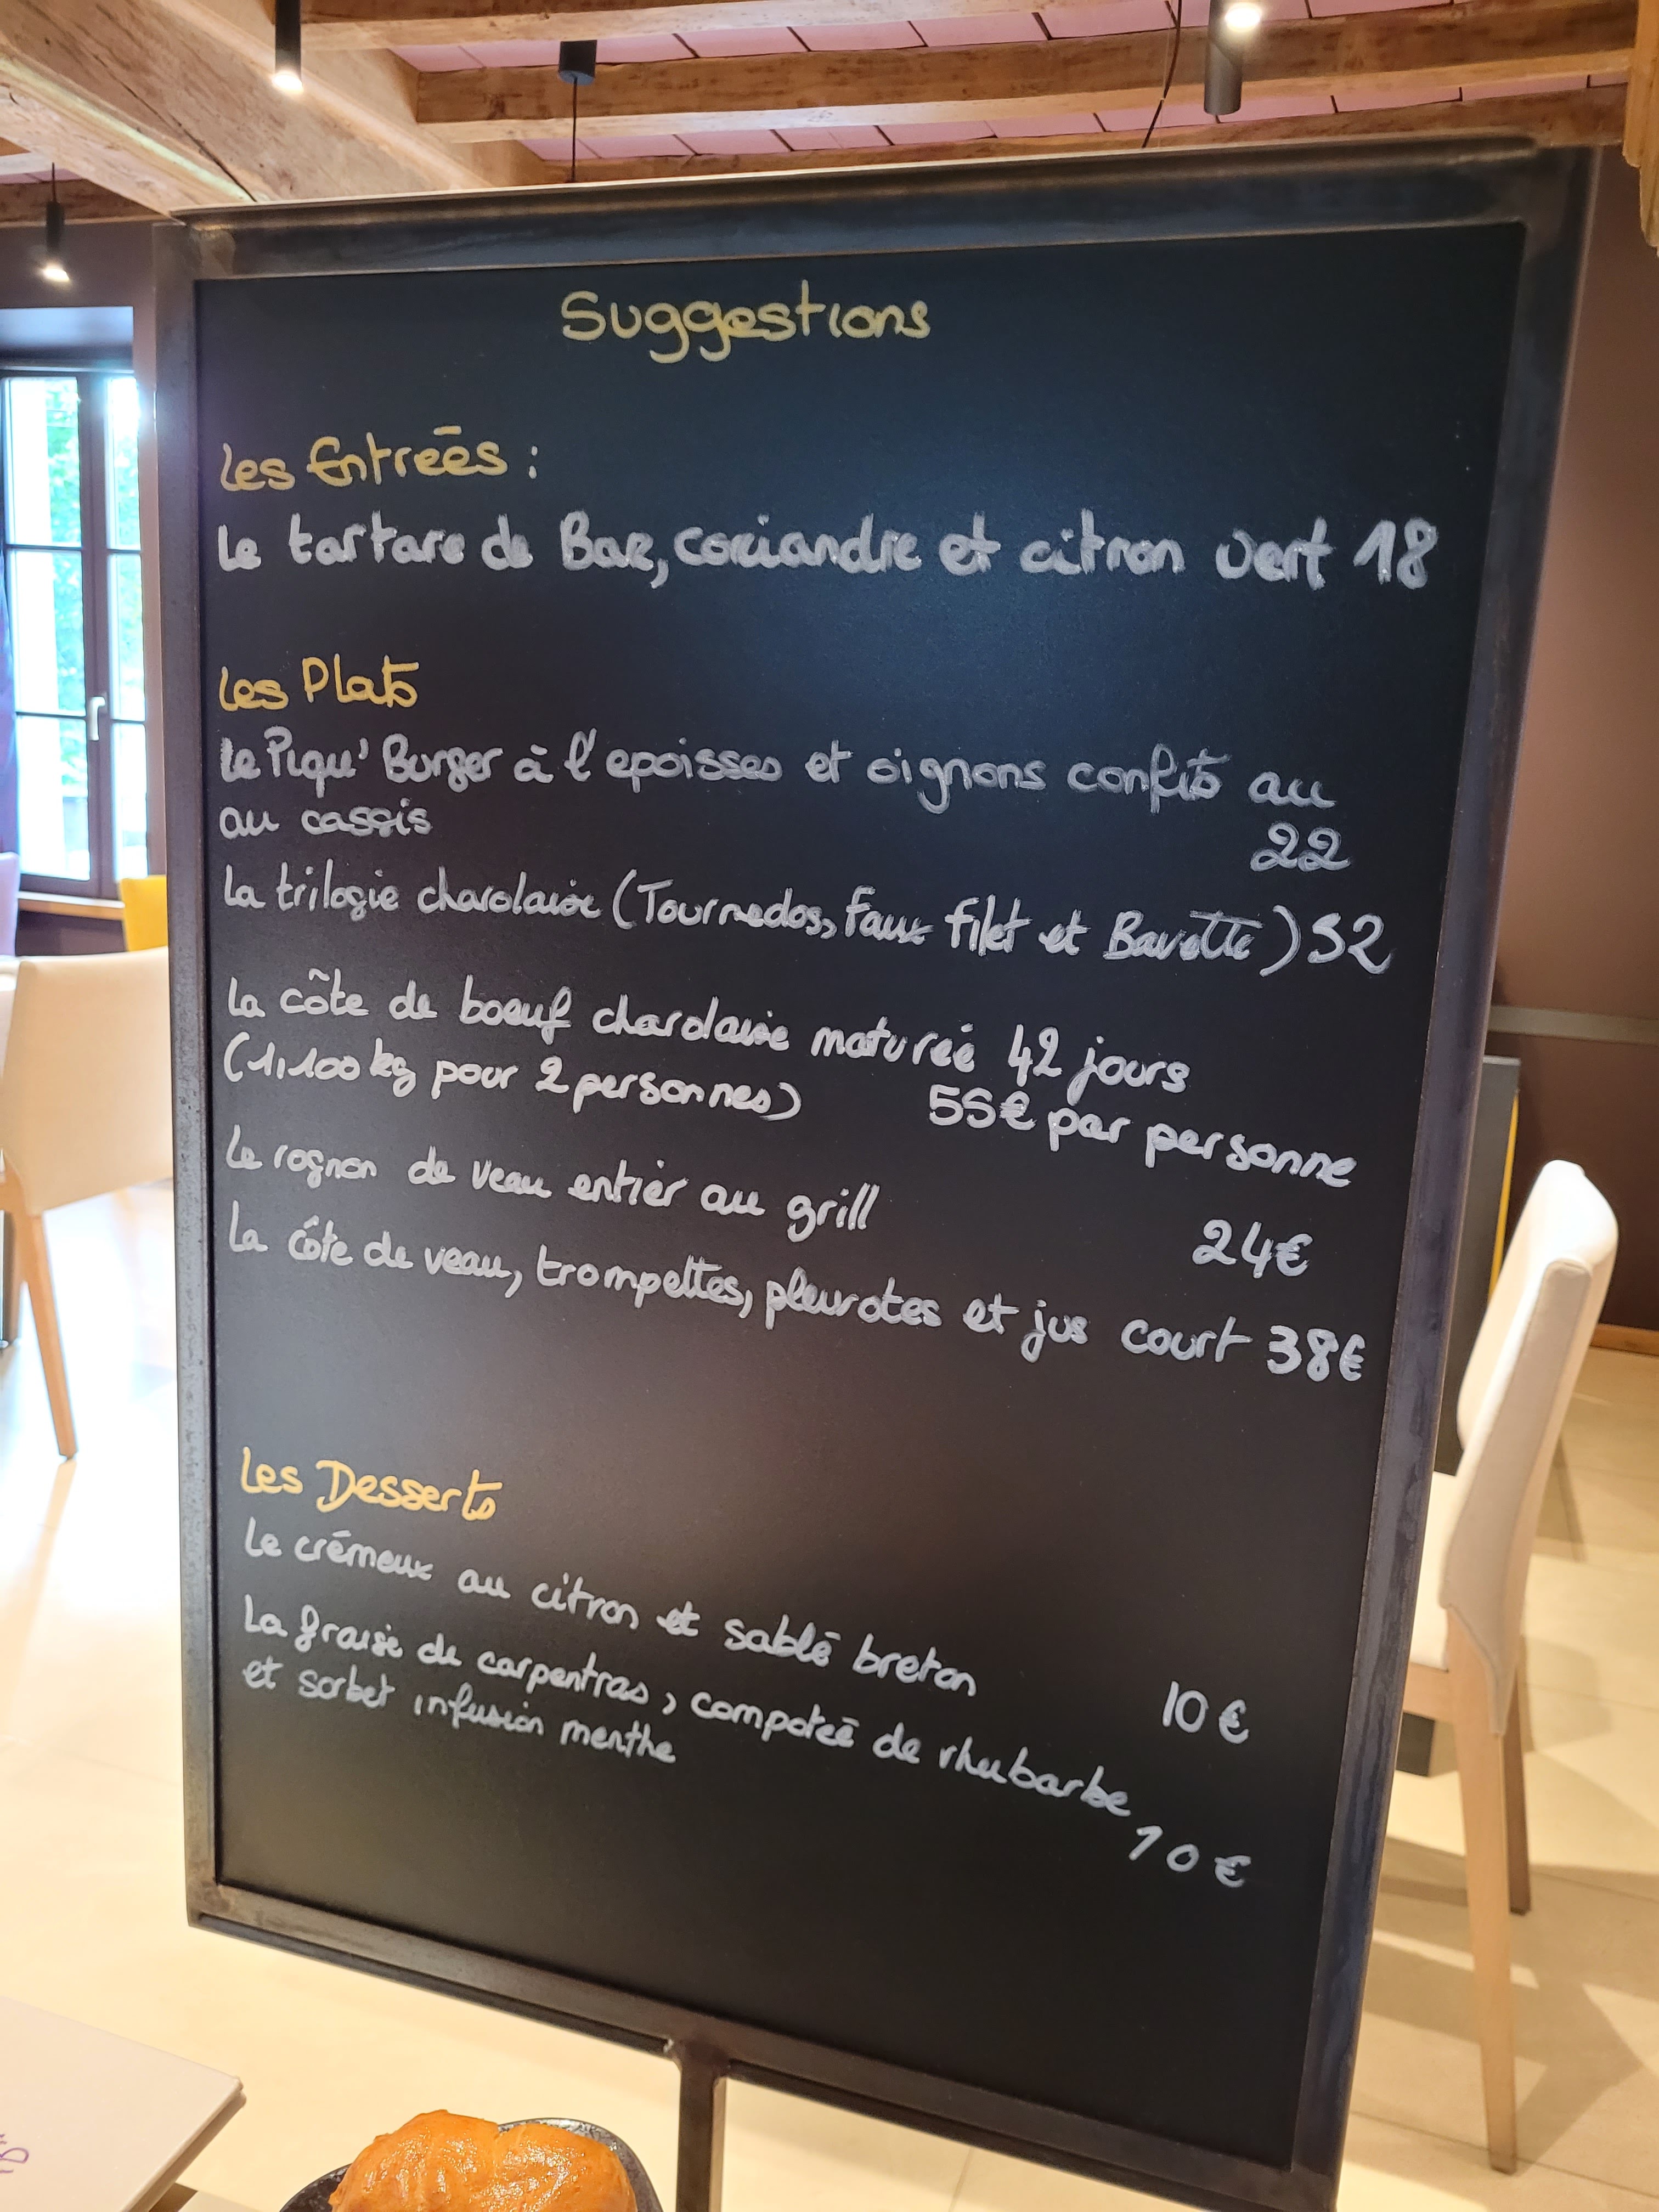 Suggestions
Les Entreēs :
Le tartare de Bar, coriandre et citron vert 18
Les Plats
Le Piqu' Burger à l'epoisses et oignons confits au
au cassis 22
La trilogie charolaise (Tournedos, Faux filet et Bavette) 52
La côte de boeuf charolaise maturée 42 jours
(1,100 kg pour 2 personnes) 55€ par personne
Le rognon de veau entier au grill 24€
La côte de veau, trompettes, pleurotes et jus court 38€
Les Desserts
Le crémeux au citron et sablé breton 10€
La fraise de carpentras, compoteé de rhubarbe
et sorbet infusion menthe 10€